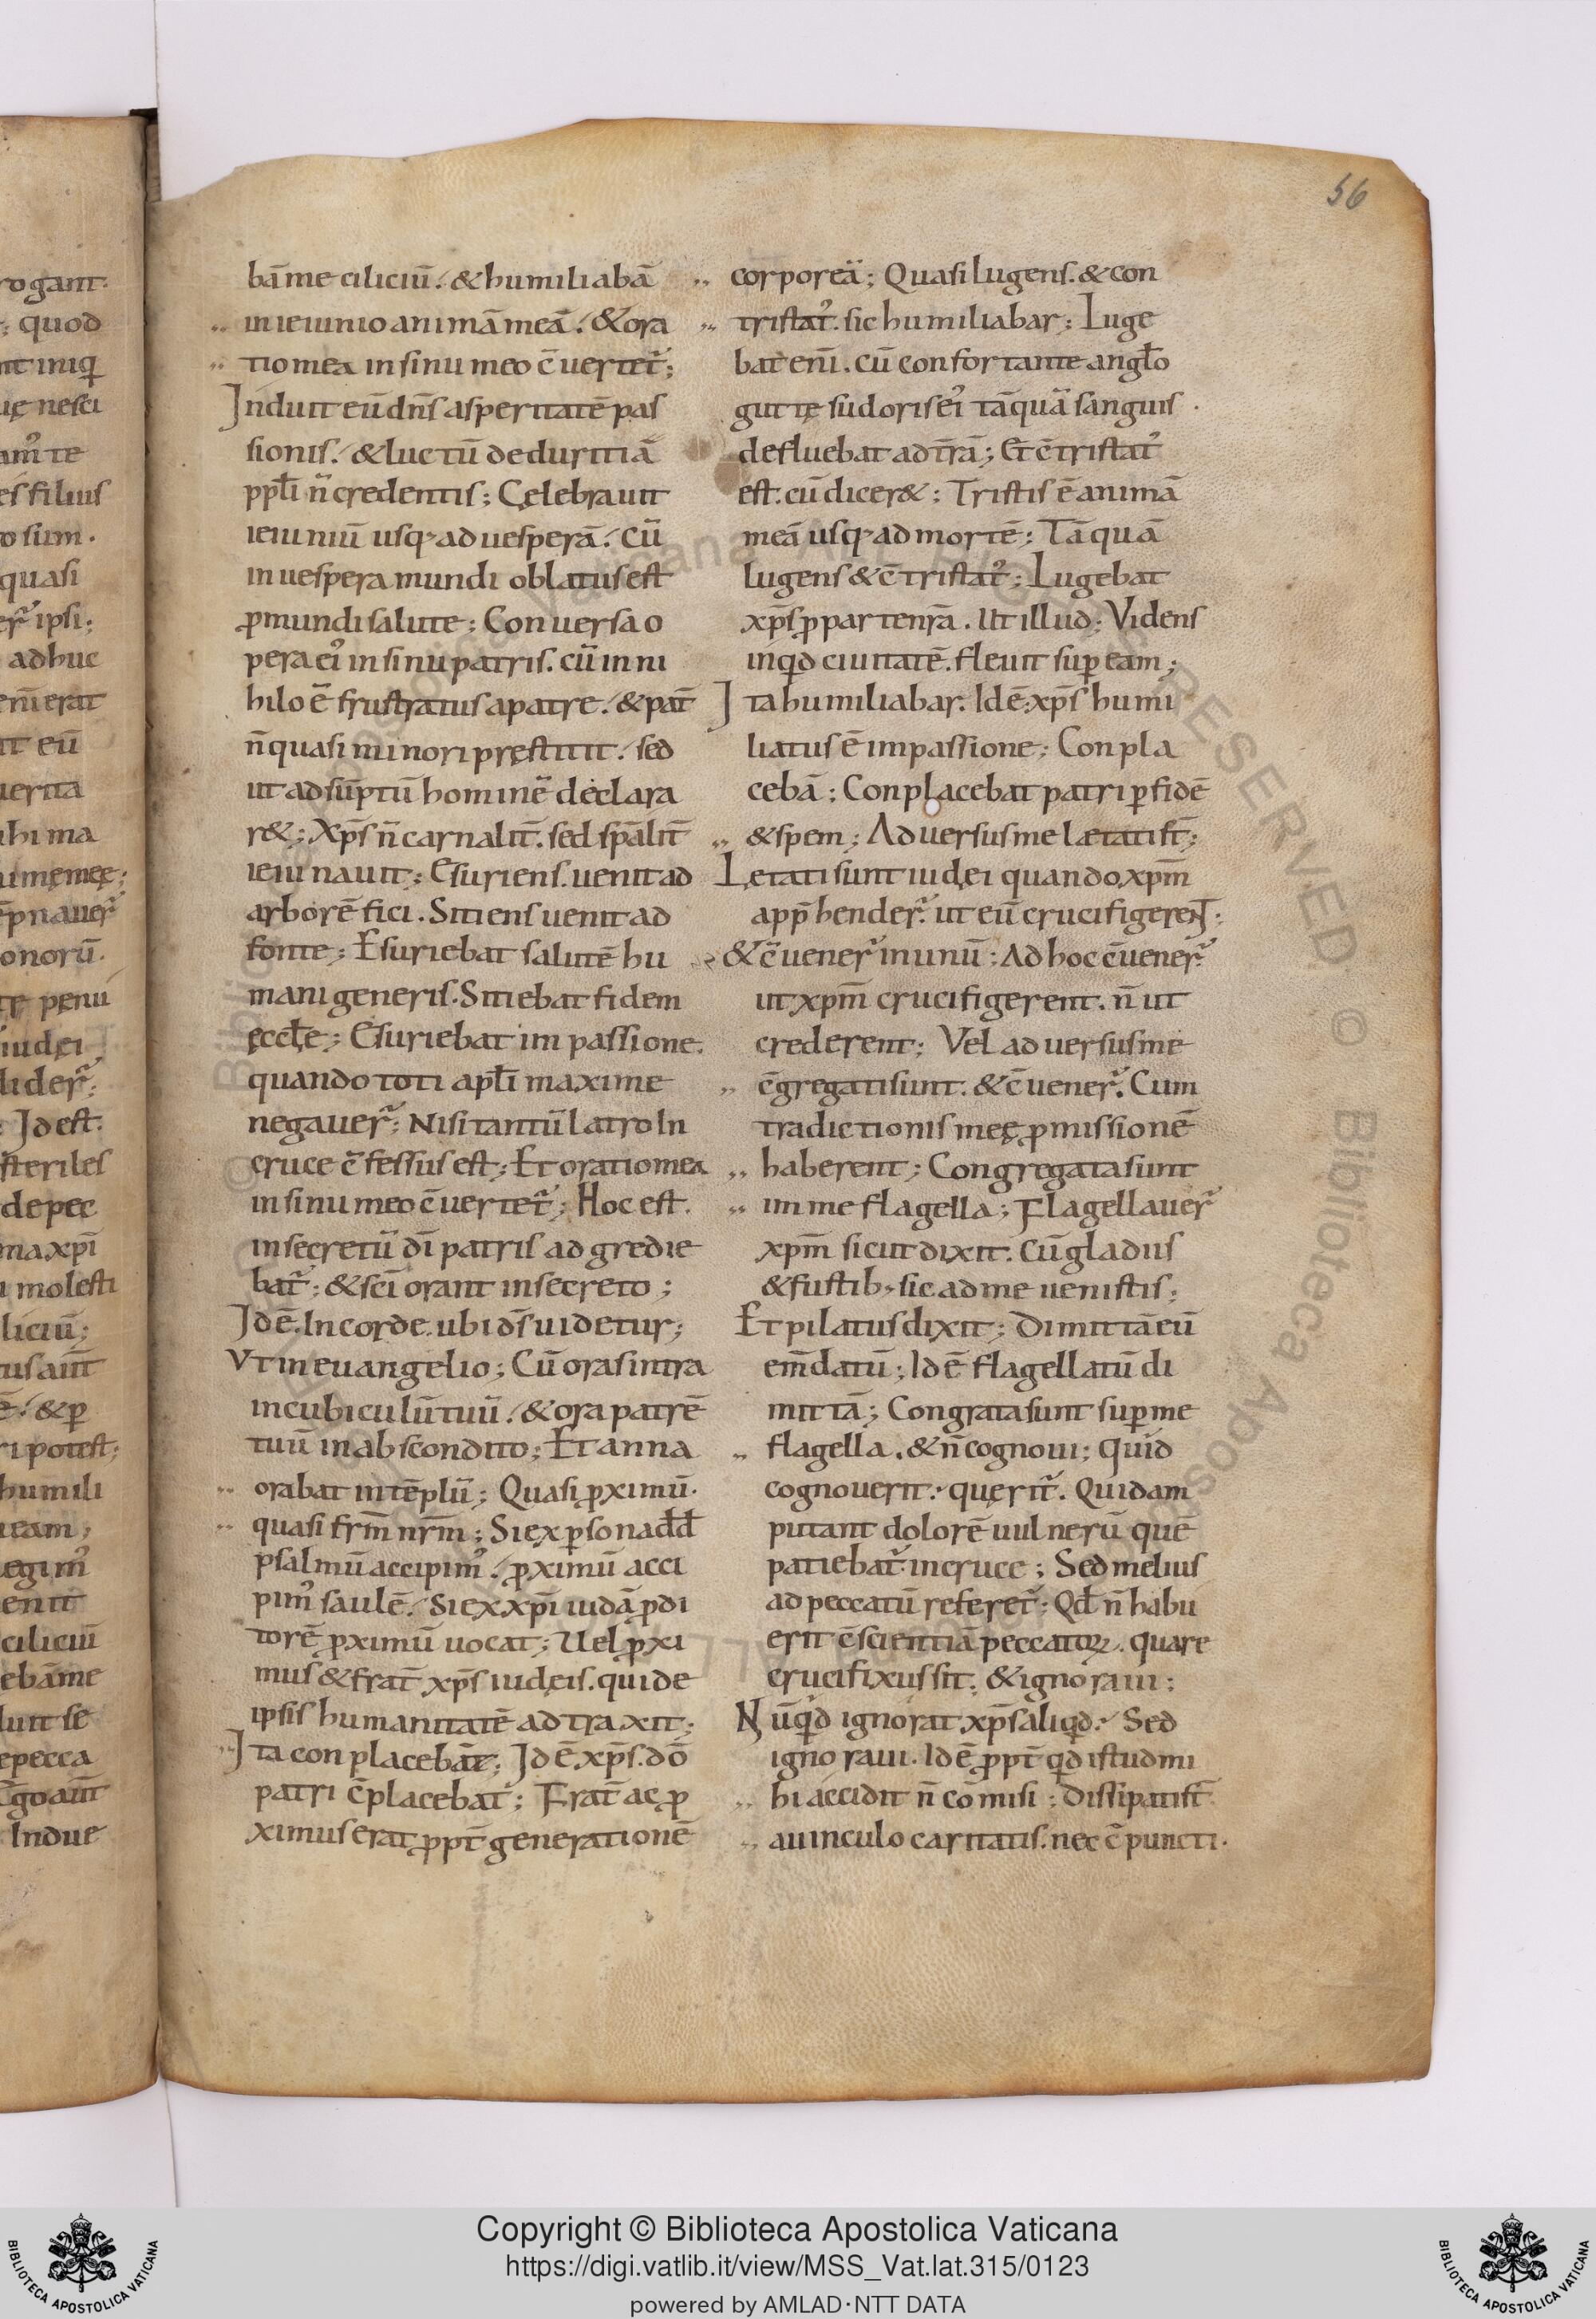 56
bā me ciliciū. & humiliabā
in ieiunio animā meā. & ora
tio mea in sinu meo c̄uertet᷑;
Induit eū dn̄s asperitatē pas
sionis. & luctū de duritiā
ppl̄i n̄ credentis; Celebrauit
ieiuniū usq; ad uesperā. cū
in uespera mundi oblatus est
ꝓ mundi salute; Conuersa o
pera eiꝰ in sinu patris. cū in ni
hilo ē frustratus a patre. & pat̄
n̄ quasi minori pręstitit. sed
ut adsūptū hominē declara
r&; Xp̄s n̄ carnalit̄. sed sp̄alit̄
ieiunauit; Esuriens. uenit ad
arborē fici. Sitiens uenit ad
fonte; Esuriebat salutē hu
mani generis. Sitiebat fidem
ęccl̄e; Esuriebat im passione.
quando toti apl̄i maxime
negauer᷑; Nisi tantū latro In
cruce c̄fessus est; Et oratio mea
in sinu meo c̄uertet᷑; Hoc est.
in secretū dī patris adgredie
bat᷑; & sc̄i orant in secreto;
Id ē. In corde. ubi ds̄ uidetur;
Vt in euangelio; Cū oras intra
in cubiculū tuū. & ora patrē
tuū in abscondito; Et anna
orabat in tēplū; Quasi ꝓximū.
quasi frm̄ nrm̄; Si ex ꝑsona dd̄
psalmū accipimꝰ. ꝓximū acci
pimꝰ saulē. Si ex xp̄i iudā ꝓdi
torē ꝓximū uocat; Uel ꝓxi
mus & frat̄ xp̄s iudęis. qui de
ipsis humanitatē adtraxit;
Ita conplacebā; Id ē. xp̄s. dō
patri c̄placebat; Frat̄ ac ꝓ
ximus erat ꝓpt̄ generationē
corporeā; Quasi lugens. & con
tristatꝰ. sic humiliabar; Luge
bat enī. cū confortante angl̄o
guttę sudoris eiꝰ tāquā sanguis
defluebat ad tr̄ā; Et c̄tristatꝰ
est. cū dicer&; Tristis ē animā
meā usq; ad mortē; Tāquā
lugens & c̄tristatꝰ; Lugebat
xp̄s ꝓ parte nr̄ā. Ut illud; Videns
inqd ciuitatē. fleuit suꝑ eam;
Ita humiliabar. Id ē; xp̄s humi
liatus ē im passione; Conpla
cebā; Conplacebat patri ꝑ fidē
& spem; Aduersus me lætati st̄;
Lętati sunt iudęi quando xpm̄
app̄hender᷑. ut eū crucifigerent;
& c̄uener᷑ in unū; Ad hoc c̄uener᷑
ut xpm̄ crucifigerent. n̄ ut
crederent; Vel aduersus me
c̄gregati sunt. & c̄uener᷑. Cum
traditionis meę ꝓmissionē
haberent; Congregata sunt
im me flagella; Flagellauer᷑
xpm̄ sicut dixit. cū gladiis
& fustib; sic ad me uenistis;
Et pilatus dixit; Dimittā eū
em̄datū; Id ē flagellatū di
mittā; Congrata sunt suꝑ me
flagella. & n̄ cognoui; Quid
cognouerit. querit᷑. Quidam
putant dolorē uulnerū quē
patiebat᷑ in cruce; Sed melius
ad peccatū referet᷑; Qd̄ n̄ habu
erit c̄scientiā peccatoꝝ. quare
crucifixus sit; & ignoraui;
Nūqd ignorat xp̄s aliqd. Sed
ignoraui. Id ē ꝓpt̄ qd istud mi
hi accidit n̄ cōmisi; Dissipati st̄
a uinculo caritatis. nec c̄puncti.
Copyright © Biblioteca Apostolica Vaticana
https://digi.vatlib.it/view/MSS_Vat.lat.315/0123
powered by AMLAD·NTT DATA